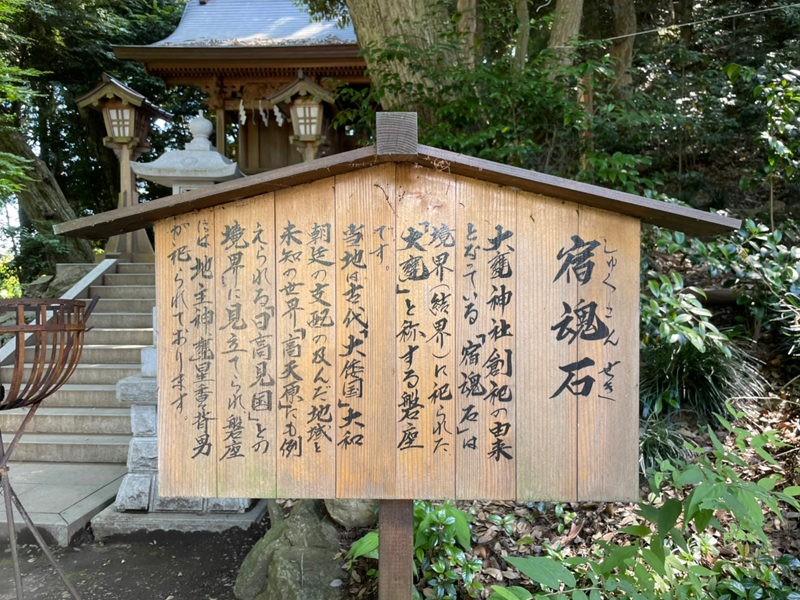 宿魂石
しゅくこんせき
大甕神社創祀の由来
となっている「宿魂石」は
境界(結界)に祀られた
「大甕」と称する磐座
です。
当地は古代「大倭国」大和
朝廷の支配の及んだ地域と
未知の世界「高天原」にも例
えられる「日高見国」との
境界に見立てられ磐座
には地主神甕星香々背男
が祀られております。